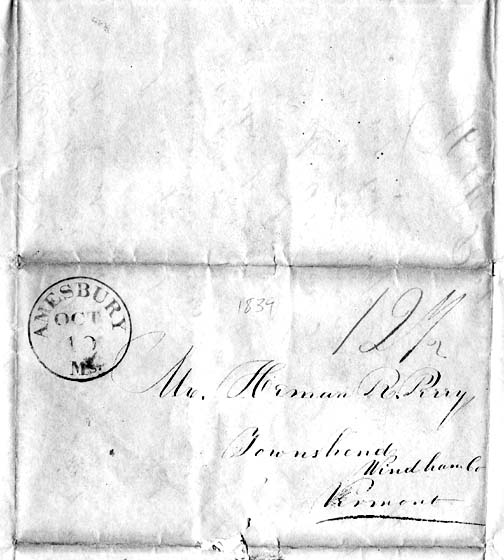 AMESBURY
OCT
10
Ms.
1839
12½
Mr. Herman R. Perry
Townshend
Windham Co
Vermont